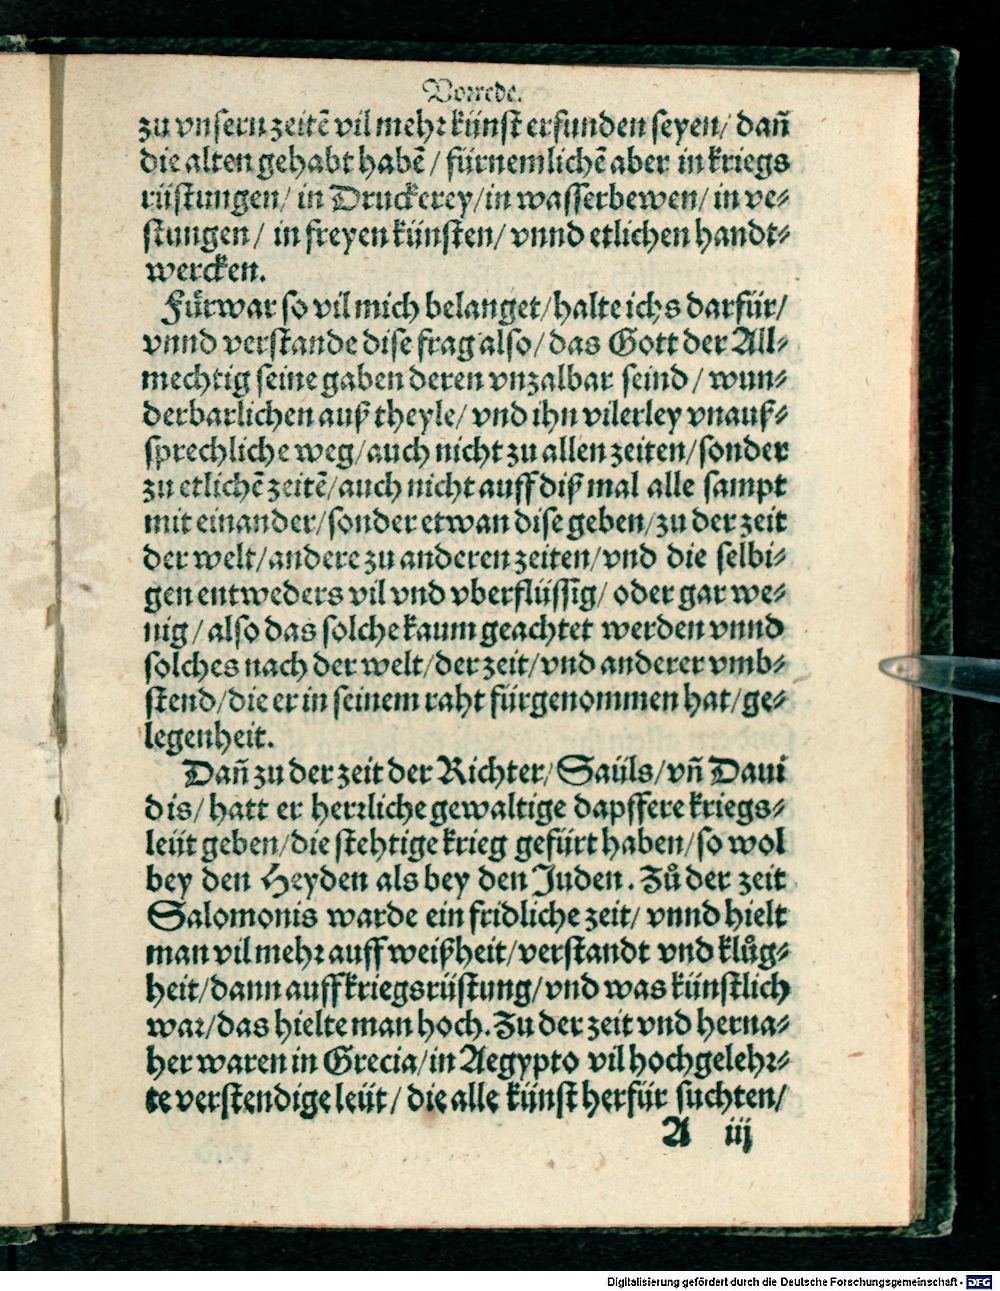 Vorrede.
zu vnsern zeitē vil mehr künst erfunden seyen/ dañ
die alten gehabt habē/ fürnemlichē aber in kriegs
rüstungen/ in Druckerey/ in wasserbewen/ in ve⸗
stungen/ in freyen künsten/ vnnd etlichen handt⸗
wercken.
Fürwar so vil mich belanget/ halte ichs darfür/
vnnd verstande dise frag also/ das Gott der All⸗
mechtig seine gaben deren vnzalbar seind/ wun⸗
derbarlichen auß theyle/ vnd ihn vilerley vnauß⸗
sprechliche weg/ auch nicht zu allen zeiten/ sonder
zu etlichē zeitē/ auch nicht auff diß mal alle sampt
mit einander/ sonder etwan dise geben/ zu der zeit
der welt/ andere zu anderen zeiten/ vnd die selbi⸗
gen entweders vil vnd vberflüssig/ oder gar we⸗
nig/ also das solche kaum geachtet werden vnnd
solches nach der welt/ der zeit/ vnd anderer vmb⸗
stend/ die er in seinem raht fürgenommen hat/ ge⸗
legenheit.
Dañ zu der zeit der Richter/ Saüls/ vñ Daui
dis/ hatt er herrliche gewaltige dapffere kriegs⸗
leüt geben/ die stehtige krieg gefürt haben/ so wol
bey den Heyden als bey den Juden. Zů der zeit
Salomonis warde ein fridliche zeit/ vnnd hielt
man vil mehr auff weißheit/ verstandt vnd klůg⸗
heit/ dann auff kriegsrüstung/ vnd was künstlich
war/ das hielte man hoch. Zu der zeit vnd herna⸗
her waren in Grecia/ in Aegypto vil hochgelehr⸗
te verstendige leüt/ die alle künst herfür suchten/
A iij
Digitalisierung gefördert durch die Deutsche Forschungsgemeinschaft - DFG